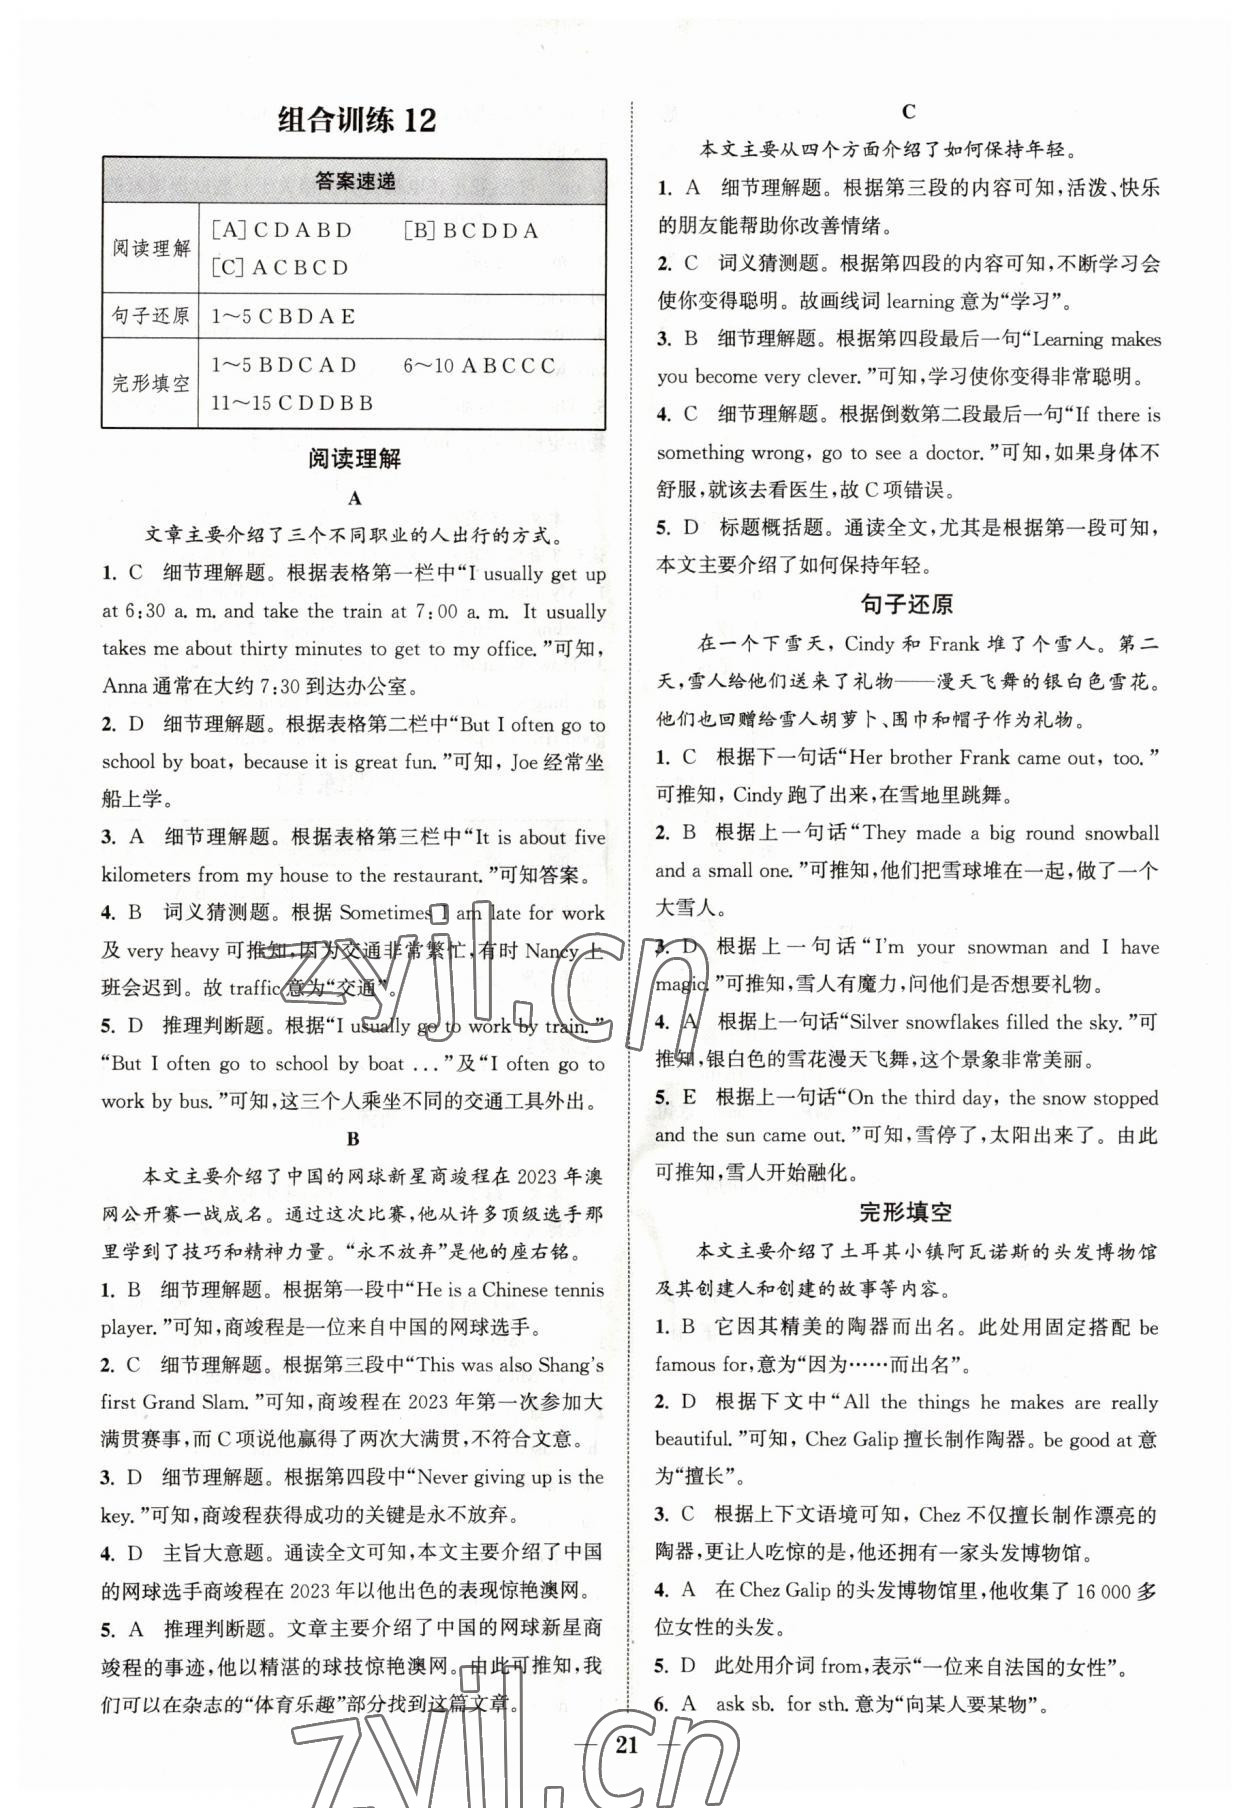 组合训练 12
答案速递
阅读理解
[A] C D A B D [B] B C D D A
[C] A C B C D
句子还原
1～5 C B D A E
完形填空
1～5 B D C A D 6～10 A B C C C
11～15 C D D B B
阅读理解
A
文章主要介绍了三个不同职业的人出行的方式。
1. C 细节理解题。根据表格第一栏中“I usually get up
at 6:30 a. m. and take the train at 7:00 a. m. It usually
takes me about thirty minutes to get to my office. ”可知，
Anna 通常在大约 7:30 到达办公室。
2. D 细节理解题。根据表格第二栏中“But I often go to
school by boat, because it is great fun. ”可知，Joe 经常坐
船上学。
3. A 细节理解题。根据表格第三栏中“It is about five
kilometers from my house to the restaurant. ”可知答案。
4. B 词义猜测题。根据 Sometimes I am late for work
及 very heavy 可推知，因为交通非常繁忙，有时 Nancy 上
班会迟到。故 traffic 意为“交通”。
5. D 推理判断题。根据“I usually go to work by train. ”
“But I often go to school by boat ... ”及“I often go to
work by bus. ”可知，这三个人乘坐不同的交通工具外出。
B
本文主要介绍了中国的网球新星商竣程在 2023 年澳
网公开赛一战成名。通过这次比赛，他从许多顶级选手那
里学到了技巧和精神力量。“永不放弃”是他的座右铭。
1. B 细节理解题。根据第一段中“He is a Chinese tennis
player. ”可知，商竣程是一位来自中国的网球选手。
2. C 细节理解题。根据第三段中“This was also Shang's
first Grand Slam. ”可知，商竣程在 2023 年第一次参加大
满贯赛事，而 C 项说他赢得了两次大满贯，不符合文意。
3. D 细节理解题。根据第四段中“Never giving up is the
key. ”可知，商竣程获得成功的关键是永不放弃。
4. D 主旨大意题。通读全文可知，本文主要介绍了中国
的网球选手商竣程在 2023 年以他出色的表现惊艳澳网。
5. A 推理判断题。文章主要介绍了中国的网球新星商
竣程的事迹，他以精湛的球技惊艳澳网。由此可推知，我
们可以在杂志的“体育乐趣”部分找到这篇文章。
C
本文主要从四个方面介绍了如何保持年轻。
1. A 细节理解题。根据第三段的内容可知，活泼、快乐
的朋友能帮助你改善情绪。
2. C 词义猜测题。根据第四段的内容可知，不断学习会
使你变得聪明。故画线词 learning 意为“学习”。
3. B 细节理解题。根据第四段最后一句“Learning makes
you become very clever. ”可知，学习使你变得非常聪明。
4. C 细节理解题。根据倒数第二段最后一句“If there is
something wrong, go to see a doctor. ”可知，如果身体不
舒服，就该去看医生，故 C 项错误。
5. D 标题概括题。通读全文，尤其是根据第一段可知，
本文主要介绍了如何保持年轻。
句子还原
在一个下雪天，Cindy 和 Frank 堆了个雪人。第二
天，雪人给他们送来了礼物——漫天飞舞的银白色雪花。
他们也回赠给雪人胡萝卜、围巾和帽子作为礼物。
1. C 根据下一句话“Her brother Frank came out, too. ”
可推知，Cindy 跑了出来，在雪地里跳舞。
2. B 根据上一句话“They made a big round snowball
and a small one. ”可推知，他们把雪球堆在一起，做了一个
大雪人。
3. D 根据上一句话“I'm your snowman and I have
magic. ”可推知，雪人有魔力，问他们是否想要礼物。
4. A 根据上一句话“Silver snowflakes filled the sky. ”可
推知，银白色的雪花漫天飞舞，这个景象非常美丽。
5. E 根据上一句话“On the third day, the snow stopped
and the sun came out. ”可知，雪停了，太阳出来了。由此
可推知，雪人开始融化。
完形填空
本文主要介绍了土耳其小镇阿瓦诺斯的头发博物馆
及其创建人和创建的故事等内容。
1. B 它因其精美的陶器而出名。此处用固定搭配 be
famous for，意为“因为……而出名”。
2. D 根据下文中“All the things he makes are really
beautiful. ”可知，Chez Galip 擅长制作陶器。be good at 意
为“擅长”。
3. C 根据上下文语境可知，Chez 不仅擅长制作漂亮的
陶器，更让人吃惊的是，他还拥有一家头发博物馆。
4. A 在 Chez Galip 的头发博物馆里，他收集了 16 000 多
位女性的头发。
5. D 此处用介词 from，表示“一位来自法国的女性”。
6. A ask sb. for sth. 意为“向某人要某物”。
21
zyjl.cn
zyjl.cn